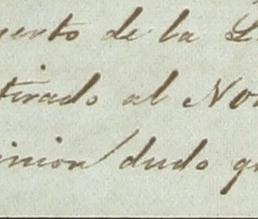 ento de la
tirado al No
inion dudo q